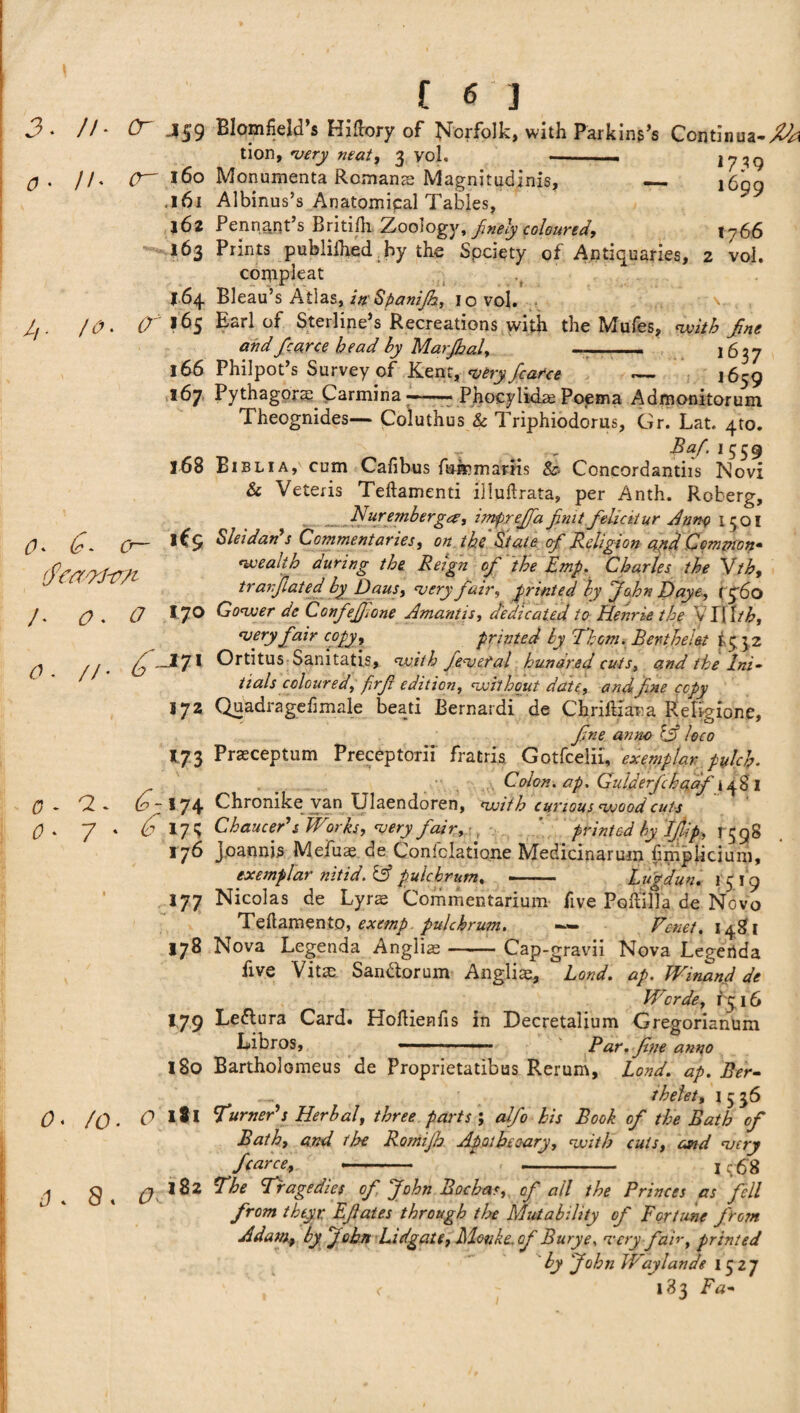 [ 6 ]
3. 11. 0 159 Blomfield's Hiſtory of Norfolk, with Parkins's Continua-
tion, very neat, 3 vol. —— 1739
0. 11. 0 160 Monumenta Romanæ Magnitudinis, — 1699
161 Albinus's Anatomical Tables,
162 Pennant's Britiſh Zoology, finely coloured, 1766
163 Prints publiſhed by the Society of Antiquaries, 2 vol.
compleat
164 Bleau's Atlas, in Spaniſh, 10 vol.
4. 10. 0 165 Earl of Sterline's Recreations with the Muſes, with fine
and ſcarce head by Marſhal, —— 1637
166 Philpot's Survey of Kent, very ſcarce — 1659
167 Pythagoræ Carmina —— Phocylidæ Poema Admonitorum
Theognides— Coluthus & Triphiodorus, Gr. Lat. 4to.
Baſ. 1559
168 BIBLIA, cum Caſibus ſummariis & Concordantiis Novi
& Veteris Teſtamenti illuſtrata, per Anth. Roberg,
Nurembergæ, impreſſa finit felicitur Anno 1501
0. 6. 0 169 Sleidan's Commentaries, on the State of Religion and Common-
wealth during the Reign of the Emp. Charles the Vth,
tranſlated by Daus, very fair, printed by John Daye, 1560
1. 0. 0 170 Gower de Confeſſione Amantis, dedicated to Henrie the VIIIth,
very fair copy, printed by Thom. Berthelet 1532
0. 11. 6 171 Ortitus Sanitatis, with ſeveral hundred cuts, and the Ini-
tials coloured, firſt edition, without date, and fine copy
172 Quadrageſimale beati Bernardi de Chriſtiana Religione,
ſine anno & loco
173 Præceptum Preceptorii fratris Gotfcelii, exemplar pulch.
Colon. ap. Gulderſchaaf 1481
0. 2. 6 174 Chronike van Ulaendoren, with curious wood cuts
0. 7. 6 175 Chaucer's Works, very fair, printed by Iſlip, 1598
176 Joannis Meſuæ de Conſolatione Medicinarum ſimplicium,
exemplar nitid. & pulchrum. —— Lugdun. 1519
177 Nicolas de Lyræ Commentarium ſive Poſtilla de Novo
Teſtamento, exemp. pulchrum. — Venet. 1481
178 Nova Legenda Angliæ —— Cap-gravii Nova Legenda
ſive Vitæ Sanctorum Angliæ, Lond. ap. Winand de
Worde, 1516
179 Lectura Card. Hoſtienſis in Decretalium Gregorianum
Libros, —— Par. ſine anno
180 Bartholomeus de Proprietatibus Rerum, Lond. ap. Ber-
thelet, 1536
0. 10. 0 181 Turner's Herbal, three parts; alſo his Book of the Bath of
Bath, and the Romiſh Apothecary, with cuts, and very
ſcarce, —— —— 1568
3. 8. 0 182 The Tragedies of John Bochas, of all the Princes as fell
from theyr Eſtates through the Mutability of Fortune from
Adam, by John Lidgate, Monke of Burye, very fair, printed
by John Waylande 1527
183 Fa-